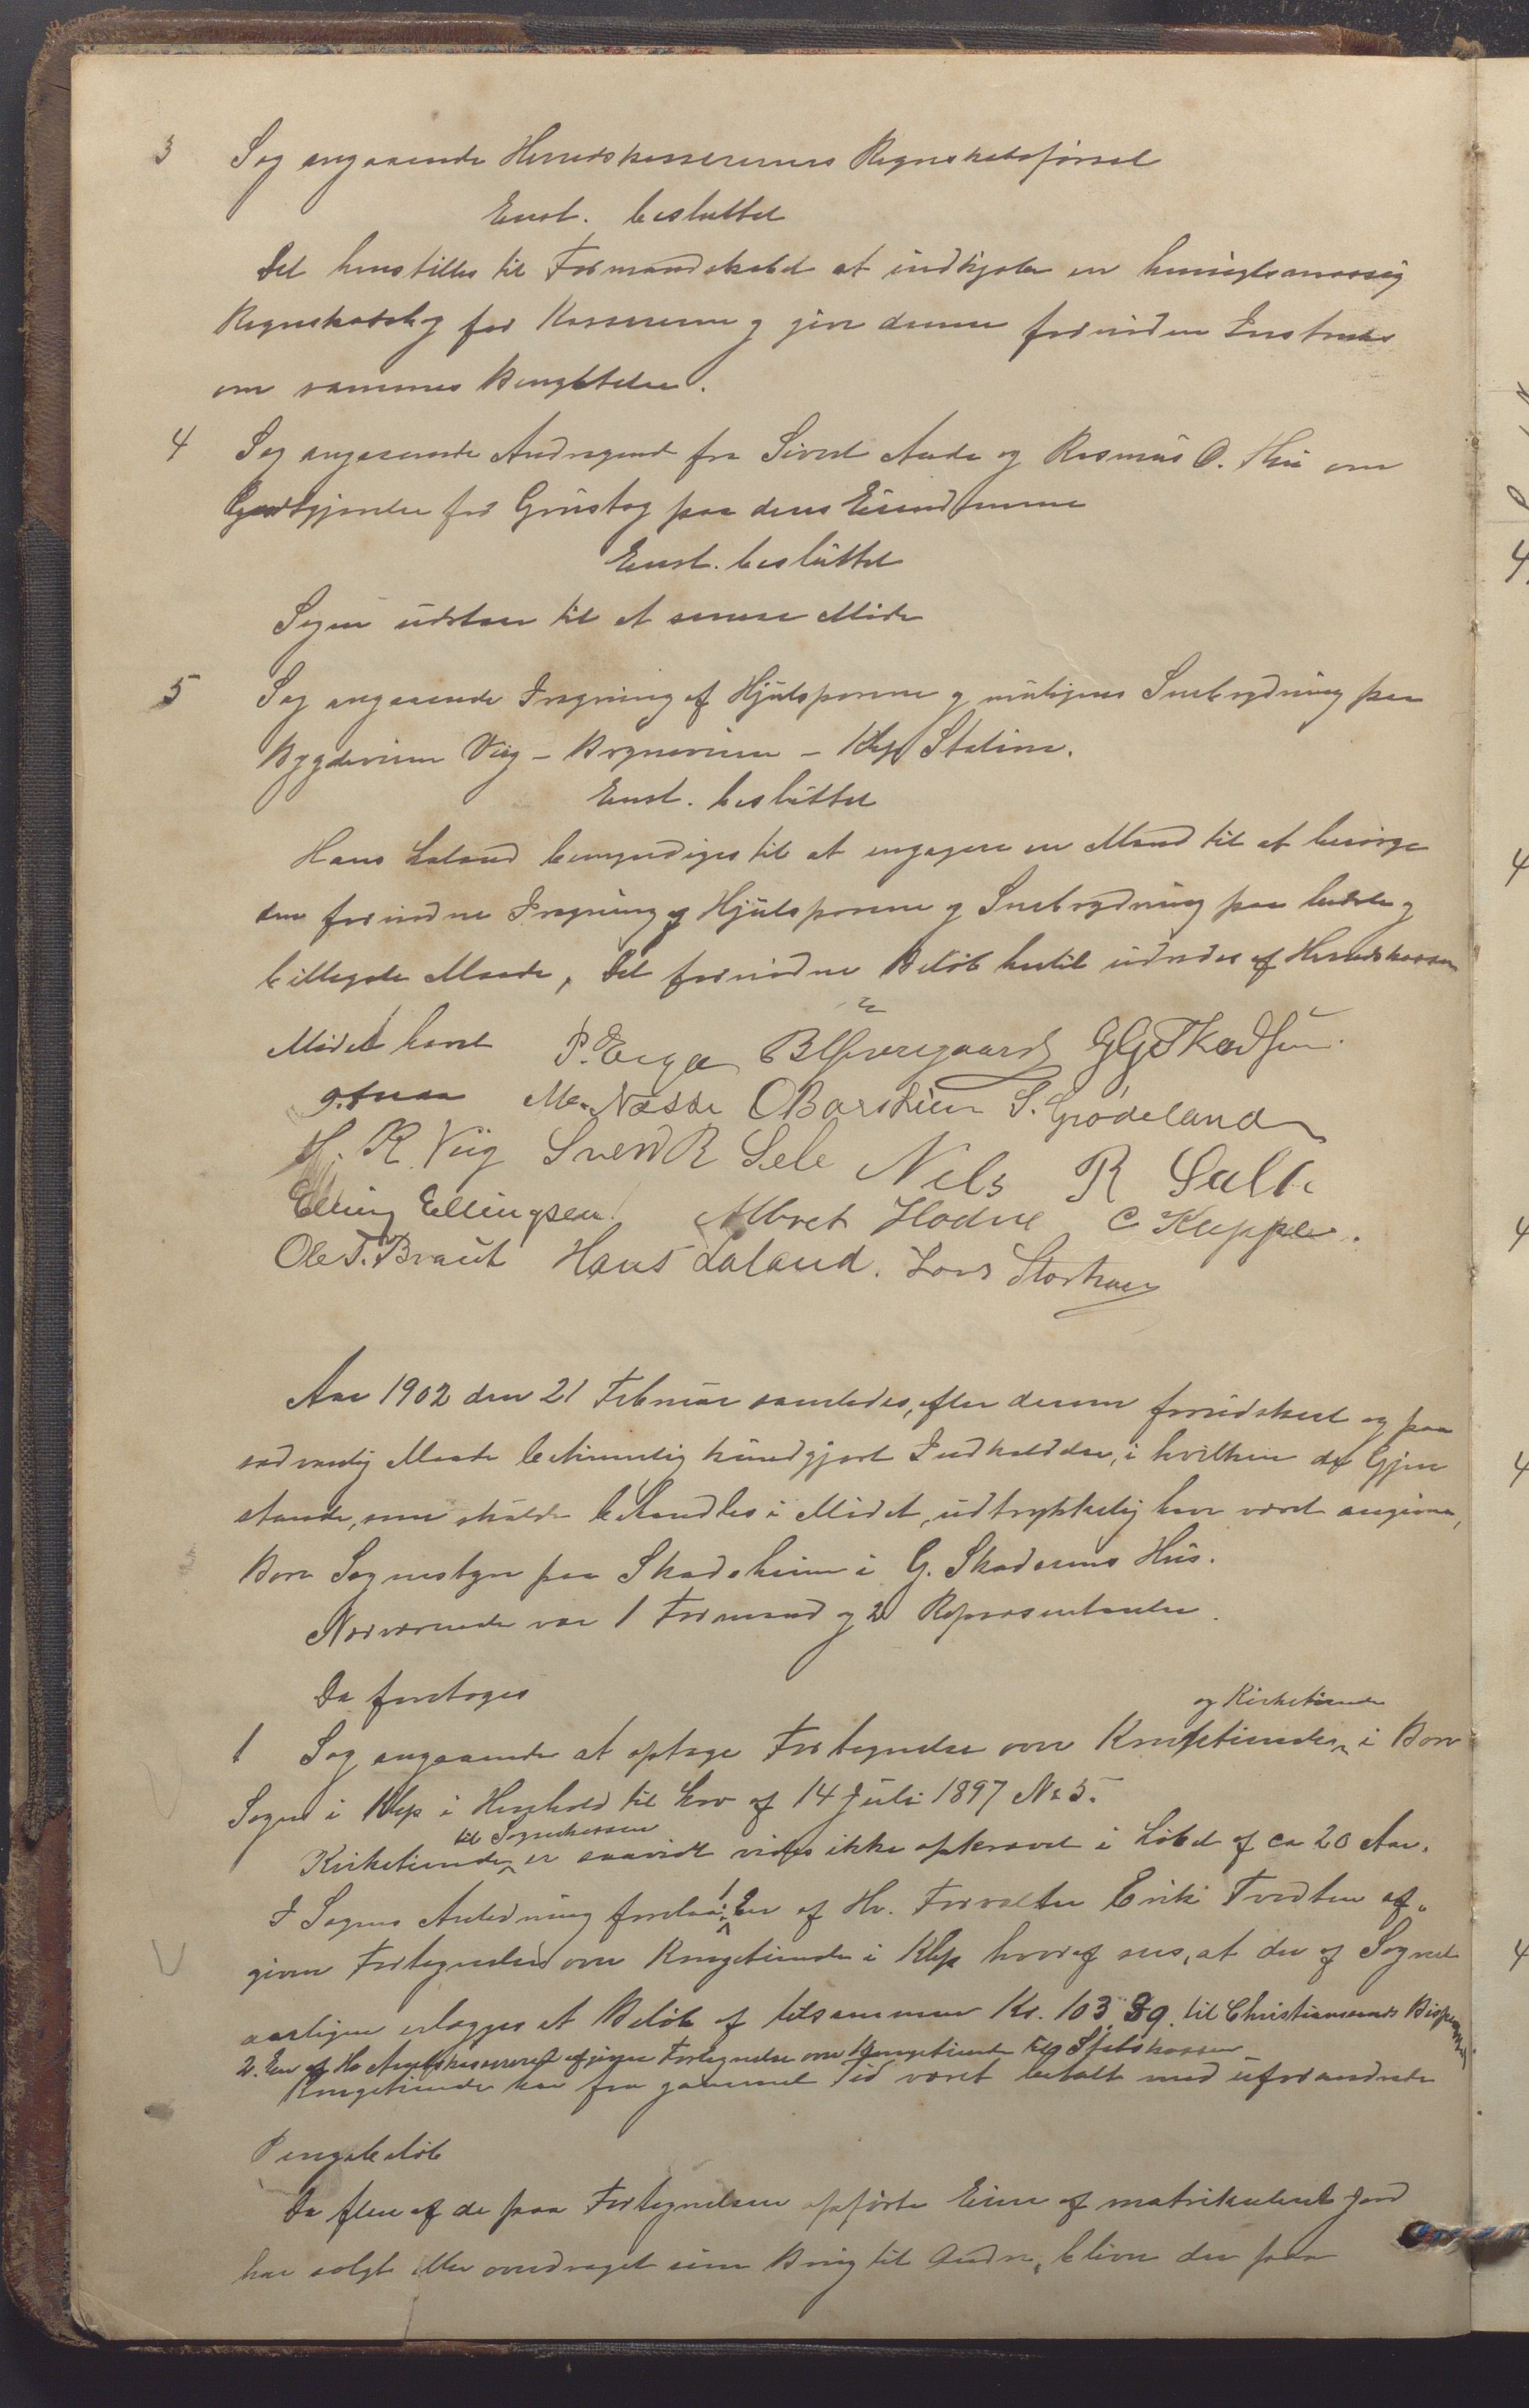 3 Sag angaaende Herredskassererens Regnskabsførsel
Enst. besluttet
Det henstilles til Formandskabet at indkjøbe en hensigtsmæssig
Regnskabsbog for Kassereren og give denne fornøden Instruks
om sammes Benyttelse.
4 Sag angaaende Andragende fra Sivert Anda og Rasmus O. Hui om
Godtgjørelse for Grustag paa deres Eiendomme
Enst. besluttet
Sagen udstaar til et senere Møde
5 Sag angaaende Iragning af Hjulsporene og muligens Snebrydning paa
Bygdeveien Viig - Bryneveien - Klep Station.
Enst. besluttet
Hans Laland bemyndiges til at engagere en Mand til at besørge
den fornødne Iragning af Hjulsporene og Snebrydning paa bedste og
billigste Maade, Det fornødne Beløb hertil udredes af Herredskassen
Mødet hævet P. Erga B. Hværegaard G G Skadsem
M. Næsse O Barstein S. Grødeland
H. R. Viig Svend R Sele Nils R Salte
Elling Ellingsen Albret Hodne C Kleppe.
Ole T. Braut Hans Laland. Lars Storhaug
Aar 1902 den 21 Februar samledes, efter derom forudskeet og paa
sædvanlig Maade betimelig kundgjort Indkaldelse, i hvilken de Gjen
stande, som skulde behandles i Mødet, udtrykkelig har været angivne,
Bore Sognestyre paa Skadsheim i G. Skadsems Hus.
Nærværende var 1 Formand og 2 Repræsentanter.
Da foretoges
og Kirketiende
1 Sag angaaende at optage Fortegnelse over Kongetiende i Bore
Sogn i Klep i Henhold til Lov af 14 Juli 1897 No 5.
til Sognekassen
Kirketiende er saavidt vides ikke opkrævet i Løbet af ca 20 Aar.
I Sagens Anledning forelaa: 1. En af Hr. Forvalter Erik Tvedten af-
given Fortegnelse over Kongetiende i Klep hvoraf sees, at der af Sognet
aarligen erlægges et Beløb af tilsammen Kr. 103.89. til Christianssands Bispestol
2. En af Hr Amtskassereren afgiven Fortegnelse over Kongetiende til Statskassen
Kongetiende har fra gammel Tid været betalt med uforandrede
Pengebeløb
Da flere af de paa Fortegnelsen opførte Eiere af matrikuleret Jord
har solgt eller overdraget sine Brug til Andre, bliver der paa